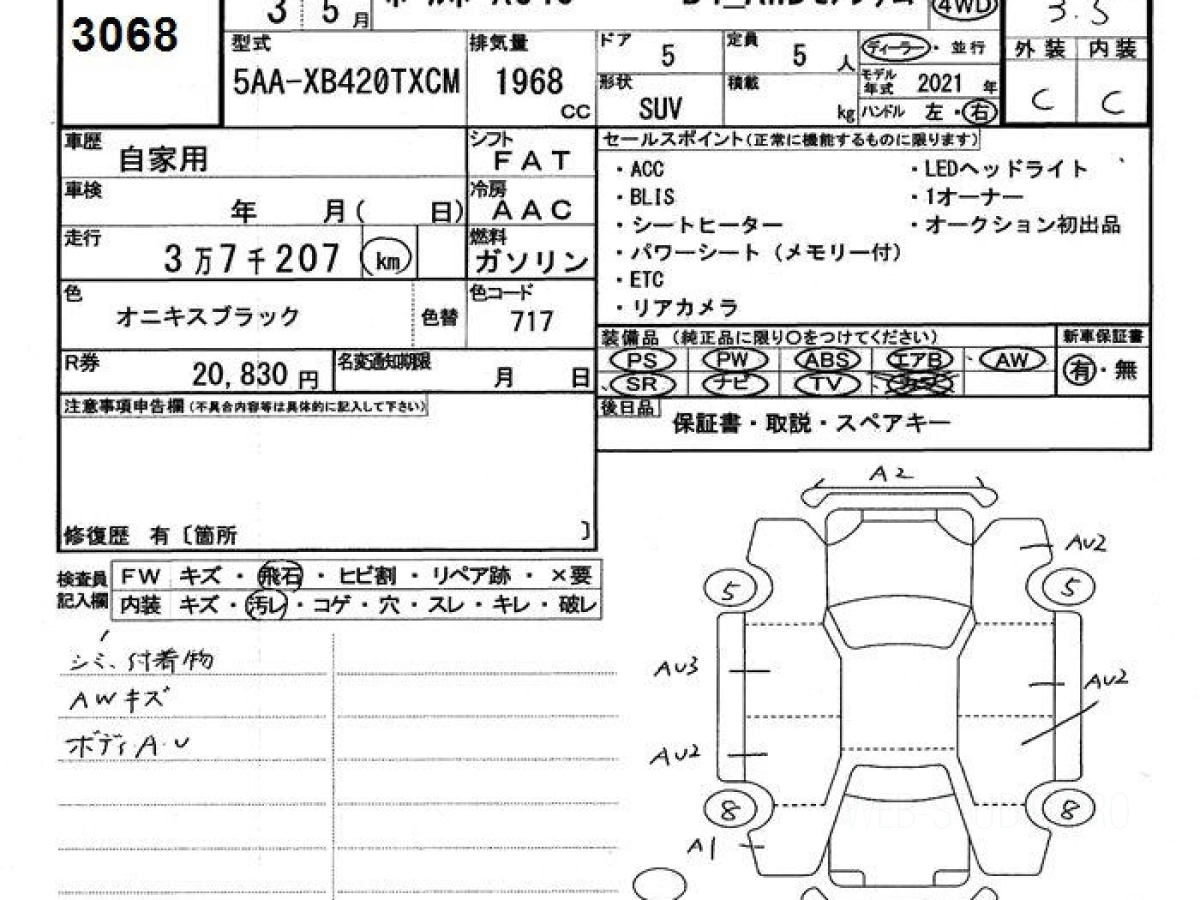 3068
3 5月
4WD
3.5
型式
5AA-XB420TXCM
排気量
1968
CC
ドア
5
定員
5
人
ディーラー・並行
外装 内装
形状
SUV
積載
kg
モデル年式 2021 年
ハンドル 左・右
C C
車歴
自家用
シフト
FAT
車検
年 月( 日)
冷房
AAC
走行
3万7千207 km
燃料
ガソリン
色
オニキスブラック
色替
色コード
717
R券
20,830 円
名変通知期限
月 日
セールスポイント(正常に機能するものに限ります)
・ACC
・BLIS
・シートヒーター
・パワーシート (メモリー付)
・ETC
・リアカメラ
・LEDヘッドライト
・1オーナー
・オークション初出品
装備品 (純正品に限り○をつけてください)
PS PW ABS エアB AW
SR ナビ TV
新車保証書
有・無
後日品
保証書・取説・スペアキー
注意事項申告欄(不具合内容等は具体的に記入して下さい)
修復歴 有〔箇所 〕
検査員記入欄
FW キズ・飛石・ヒビ割・リペア跡・×要
内装 キズ・汚レ・コゲ・穴・スレ・キレ・破レ
シミ、付着物
AWキズ
ボディA・U
A2
AU2
5 5
AU3
AU2
AU2
8 8
A1